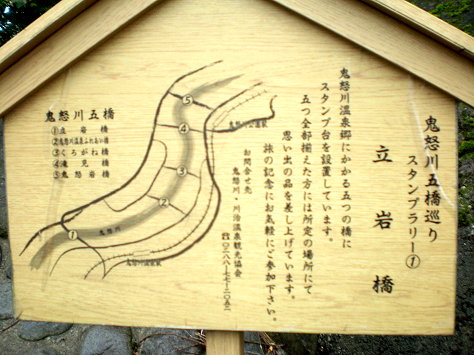 鬼怒川五橋巡り
スタンプラリー①
立岩橋
鬼怒川温泉郷にかかる五つの橋に
スタンプ台を設置しています。
五つ全部揃えた方には所定の場所にて
思い出の品を差し上げています。
旅の記念にお気軽にご参加下さい。
お問合せ先
鬼怒川・川治温泉観光協会
☎〇二八八-七七-二〇五二
鬼怒川五橋
①立岩橋
②鬼怒川温泉ふれあい橋
③くろがね橋
④滝見橋
⑤鬼怒岩橋
⑤
④
③
②
①
鬼怒川
鬼怒川公園駅
鬼怒川温泉駅